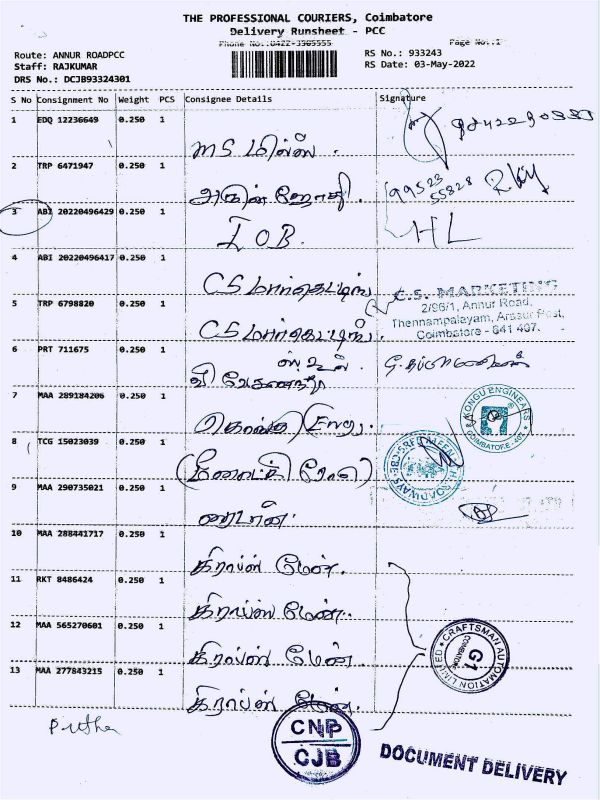 THE PROFESSIONAL COURIERS, Coimbatore
Delivery Runsheet - PCC
Phone No.:0422-3505555 Page No.:1
Route: ANNUR ROADPCC RS No.: 933243
Staff: RAJKUMAR RS Date: 03-May-2022
DRS No.: DCJB93324301
S No Consignment No Weight PCS Consignee Details Signature
1 EDQ 12236649 0.250 1
MS மில்ஸ்.
2 TRP 6471947 0.250 1
99523
55828
3 ABI 20220496429 0.250 1
I O B. HL
4 ABI 20220496417 0.250 1
CS மார்கெட்டிங் C.S. MARKETING
5 TRP 6798820 0.250 1 2/96/1, Annur Road,
Thennampalayam, Arasur Post,
CS மார்கெட்டிங். Coimbatore - 641 407.
6 PRT 711675 0.250 1
7 MAA 289184206 0.250 1
KONGU ENGINEERS
COIMBATORE
8 TCG 15023039 0.250 1
ROADWAYS-CBE
9 MAA 290735021 0.250 1
10 MAA 288441717 0.250 1
கிராப்ஸ் மேன்.
11 RKT 8486424 0.250 1
கிராப்ஸ் மேன்.
12 MAA 565270601 0.250 1
கிராப்ஸ் மேன்.
CRAFTSMAN AUTOMATION LIMITED
COIMBATORE
G1
13 MAA 277843215 0.250 1
கிராப்ஸ் மேன்.
CNP
CJB
DOCUMENT DELIVERY